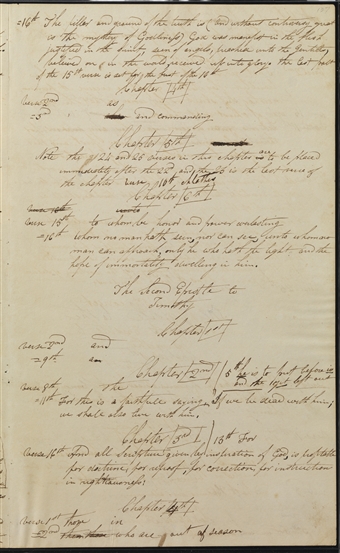 =16th The pillar and ground of the truth is (and without controversy great
is the mystery of Godliness) God was manifest in the flesh
justified in the spirit, seen of angels, preached unto the Gentiles,
believed on in the world, received up into glory. the last part
of the 15th verse is set for the first of the 16th
Chapter 4th
Verse 2nd as
=3rd and commanding
Chapter 5th
Note the 24 and 25 verses in this chapter are to be placed
immediately after the 22nd and the is the last verse of
the chapter
Chapter 6th
Verse 15th to whom be honor and power everlasting
=16th whom no man hath seen, nor can see, unto whom no
man can approach, only he who hath the light and the
hope of immortality dwelling in him.
The Second Epistle to
Timothy
Chapter 1st
Verse 2nd and
=9th
Chapter 2nd 5th is to be put before
and the left out
Verse 8th the
=11th For this is a faithful saying, If we be dead with him,
we shall also live with him.
Chapter 3rd 13th For
Verse 16th And all Scripture given by inspiration of God, is profitable
for doctrine, for reproof, for correction, for instruction
in righteousness:
Chapter 4th
Verse 1st in
=2nd who are out of season